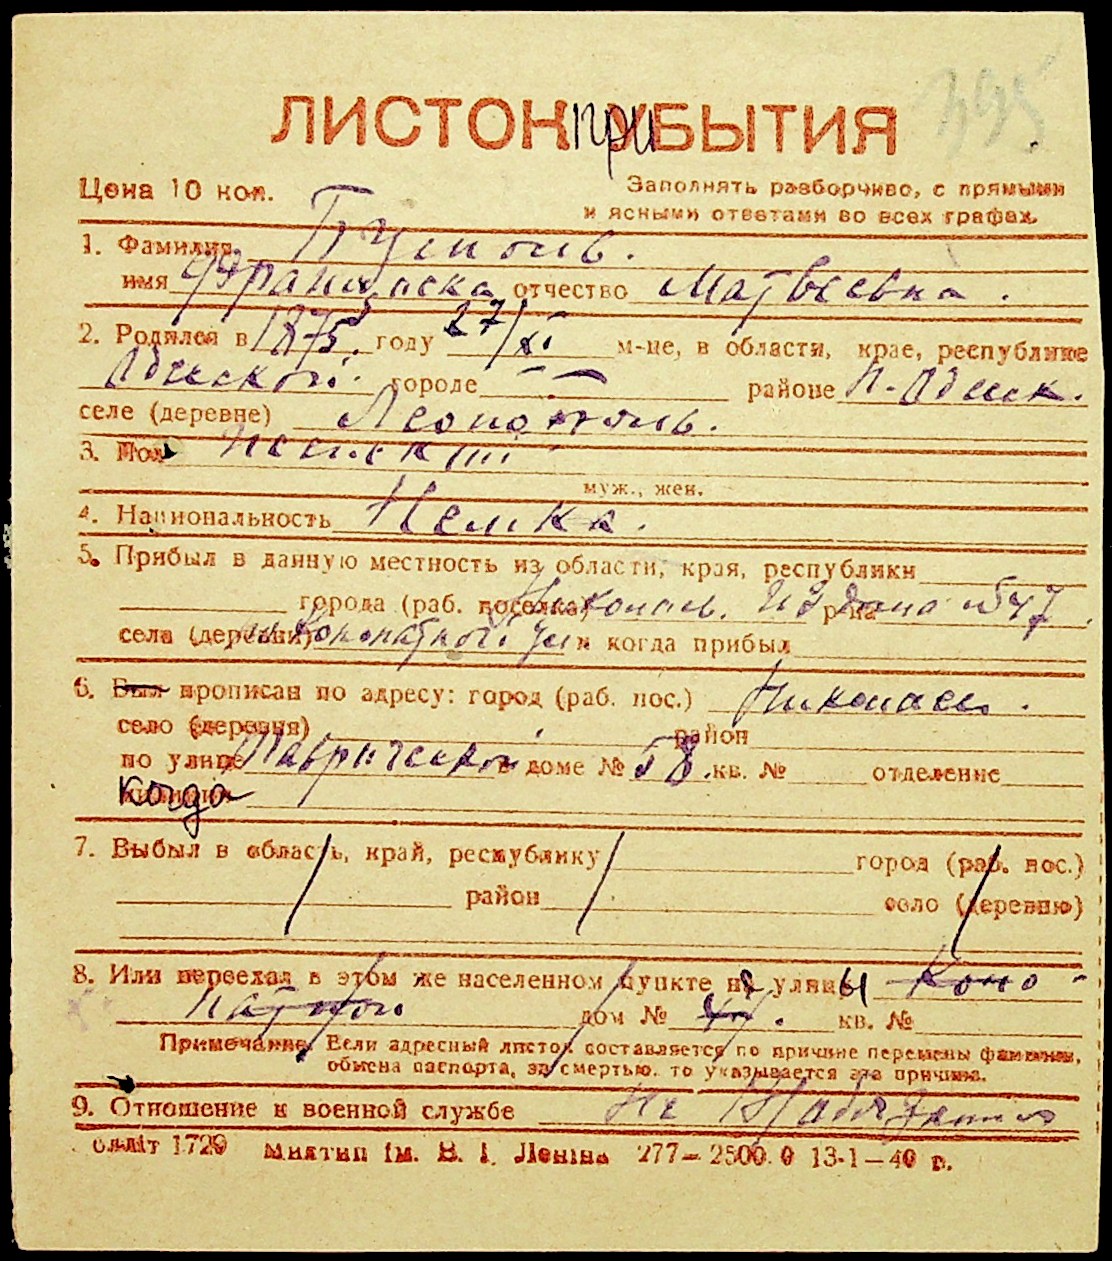 ЛИСТОК приБЫТИЯ
Цена 10 коп.
Заполнять разборчиво, с прямыми
и ясными ответами во всех графах.
1. Фамилия
имя Франциска отчество Матвеевна.
2. Родился в 1875 году 27/XI м-це, в области, крае, республике
Одесской городе — районе Н.-Одесск.
селе (деревне)
3. Пол Женский
муж., жен.
4. Национальность Немка.
5. Прибыл в данную местность из области, края, республики
города (раб. поселка) Николаев. р-на № 47
села (деревни) Конопатной ул и когда прибыл
6. Был прописан по адресу: город (раб. пос.) Николаев.
село (деревня) район
по улице Таврической в доме № 58. кв. № отделение
Когда
7. Выбыл в область, край, республику город (раб. пос.)
район село (деревню)
8. Или переехал в этом же населенном пункте на улицы Коно-
патной дом № 47. кв. №
Примечание. Если адресный листок составляется по причине перемены фамилии,
обмена паспорта, за смертью, то указывается эта причина.
9. Отношение к военной службе Не
Облліт 1729 Миктип ім. В. І. Леніна 277—2500.0 13-1—40 р.